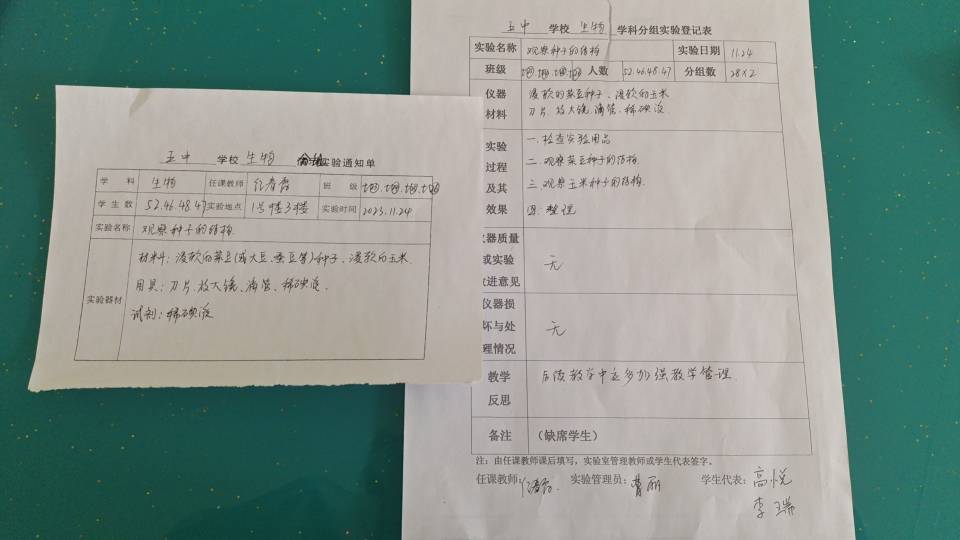 五中 学校 生物 分组实验通知单
学科 生物 任课教师 任春霞 班级
学生数 52.46.48.47 实验地点 1号楼3楼 实验时间 2023.11.24
实验名称 观察种子的结构
实验器材
材料:浸软的菜豆(或大豆、蚕豆等)种子、浸软的玉米
用具:刀片、放大镜、滴管、稀碘液.
试剂:稀碘液
五中 学校 生物 学科分组实验登记表
实验名称 观察种子的结构 实验日期 11.24
班级 人数 52.46.48.47 分组数 28×2
仪器材料
浸软的菜豆种子、浸软的玉米
刀片、放大镜、滴管、稀碘液
实验过程及其效果
一.检查实验用品
二.观察菜豆种子的结构
三.观察玉米种子的结构.
四.整理
仪器质量或实验改进意见 无
仪器损坏与处理情况 无
教学反思 后续教学中应多加强教学管理.
备注 (缺席学生)
注:由任课教师课后填写,实验室管理教师或学生代表签字。
任课教师: 实验管理员:曹丽 学生代表:高悦
李瑞